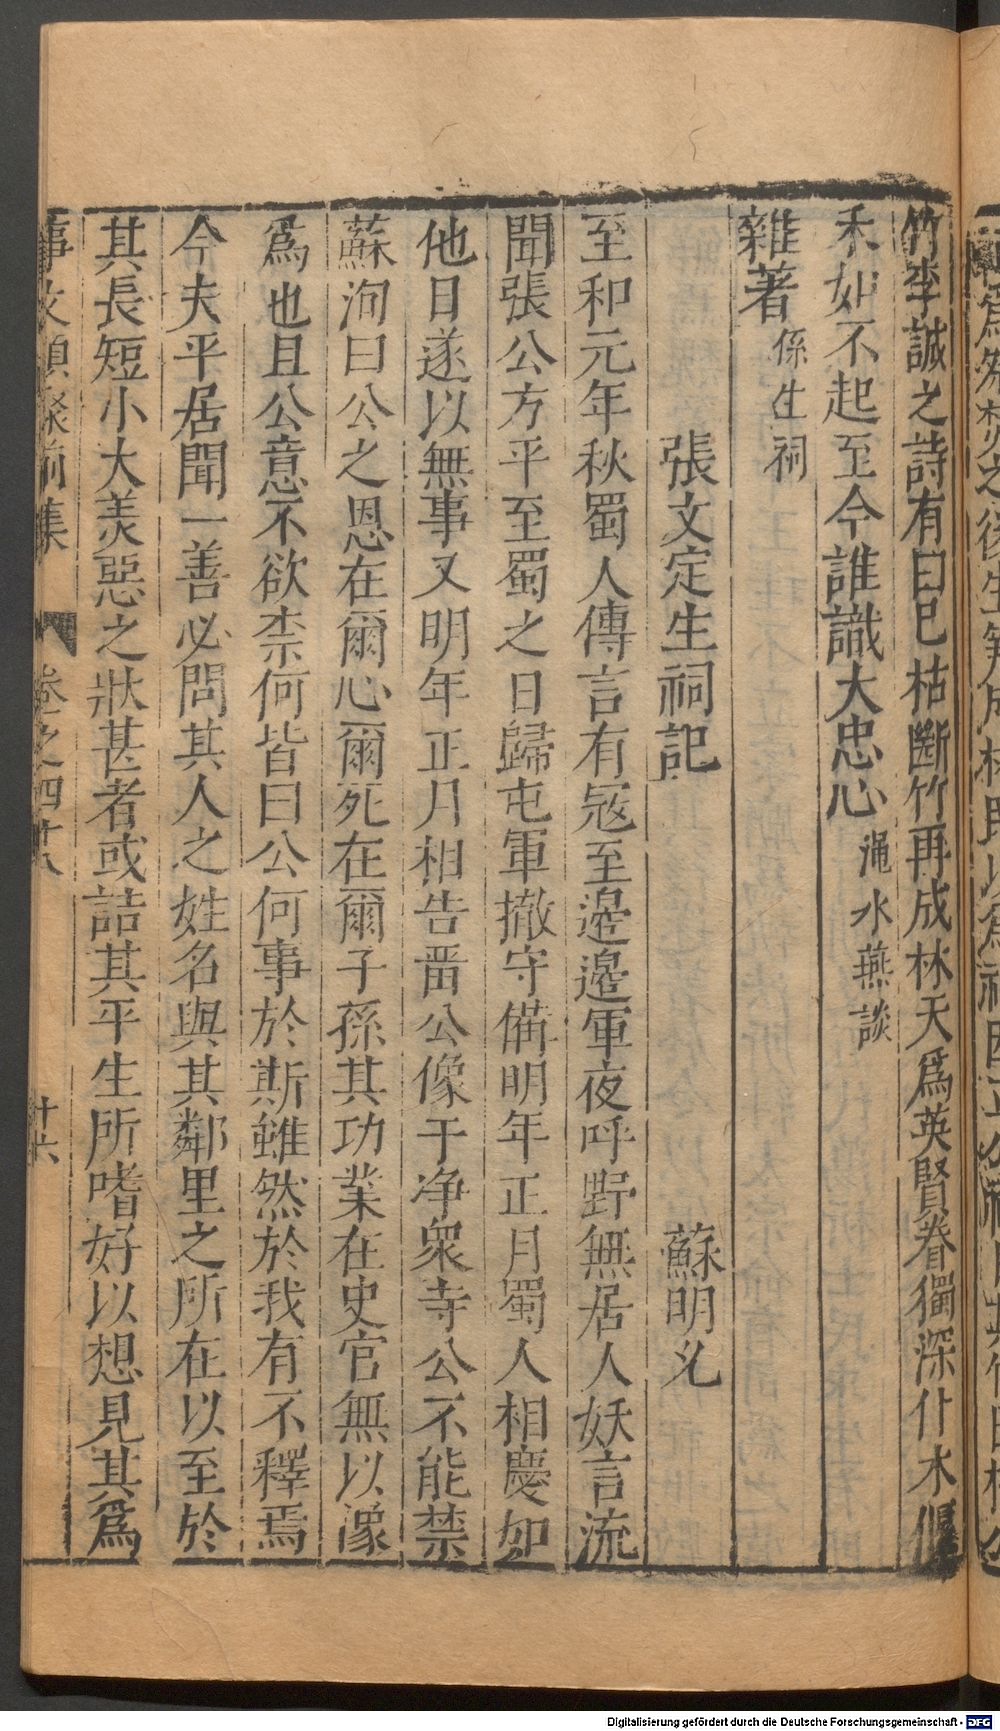 竹李誠之詩有曰已枯斷竹再成林天爲英賢眷獨深仆木偃
禾如不起至今誰識大忠心澠水燕談
雜著係生祠
張文定生祠記 蘇明允
至和元年秋蜀人傳言有冦至邉邉軍夜呼野無居人妖言流
聞張公方平至蜀之日歸屯軍撤守備明年正月蜀人相慶如
他日遂以無事又明年正月相告畱公像于净衆寺公不能禁
蘇洵曰公之恩在爾心爾死在爾子孫其功業在史官無以像
爲也且公意不欲柰何皆曰公何事於斯雖然於我有不釋焉
今夫平居聞一善必問其人之姓名與其鄰里之所在以至於
其長短小大美惡之狀甚者或詰其平生所嗜好以想見其爲
事文類聚前集 卷之四十八 十六
Digitalisierung gefördert durch die Deutsche Forschungsgemeinschaft - DFG